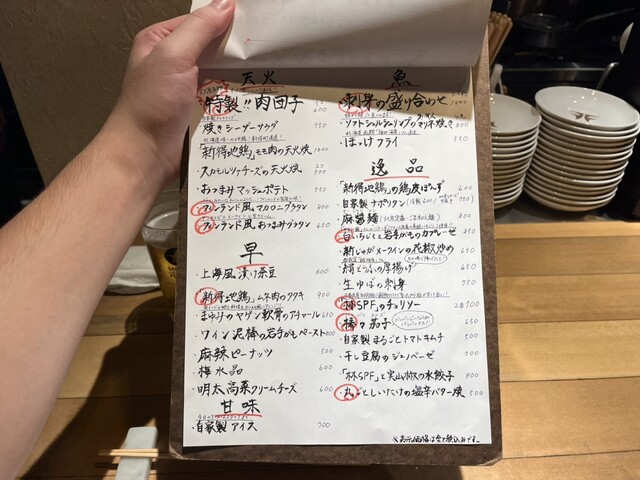 天火
特製!!肉団子
焼きシーザーサラダ 750
「新得地鶏」もも肉の天火焼 1800
スカモルツァチーズの天火焼
おつまみマッシュポテト 550
フィンランド風マカロニグラタン 800
フィンランド風おつまみグラタン 650
早
上海風漬け茶豆 600
「新得地鶏」ムネ肉のタタキ 900
まゆみのヤゲン軟骨のアチャール 610
ワイン泥棒の岩手がもペースト 800
麻辣ピーナッツ 500
梅水晶 600
明太高菜クリームチーズ 600
甘味
・自家製アイス 700
魚
刺身の盛り合わせ
ほっけフライ 750
逸品
「新得地鶏」の鶏皮ぽんず 600
自家製ナポリタン
麻醤麺 800
白いちじくと岩手がものカプレーゼ
新じゃがメークインの花椒炒め 690
絹とうふの厚揚げ 650
生ゆばの刺身 750
「林SPF」のチョリソー 2本700
椿々茄子 650
自家製まるごとトマトキムチ 500
干し豆腐のジェノベーゼ 700
「林SPF」と実山椒の水餃子 800
丸ごとしいたけの塩辛バター焼 500
※表示価格は全て税込みです。